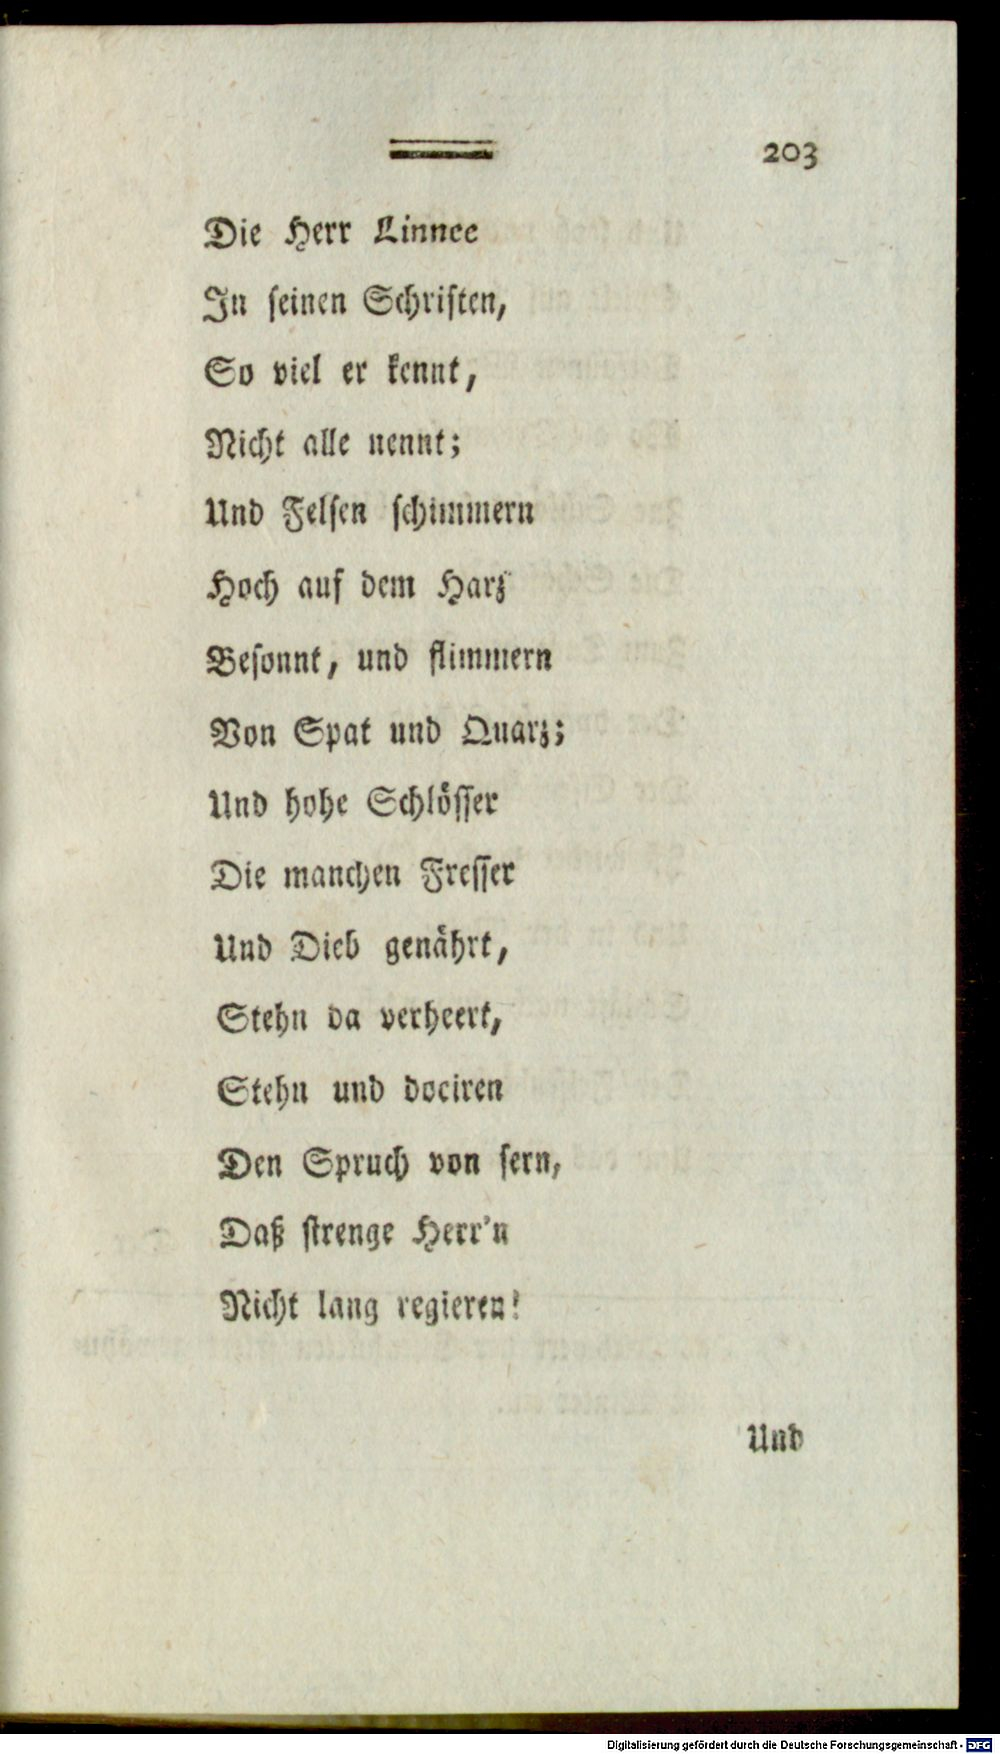 203
Die Herr Linnee
In seinen Schriften,
So viel er kennt,
Nicht alle nennt;
Und Felsen schimmern
Hoch auf dem Harz
Besonnt, und flimmern
Von Spat und Quarz;
Und hohe Schlösser
Die manchen Fresser
Und Dieb genährt,
Stehn da verheert,
Stehn und dociren
Den Spruch von fern,
Daß strenge Herr'n
Nicht lang regieren!
Und
Digitalisierung gefördert durch die Deutsche Forschungsgemeinschaft - DFG